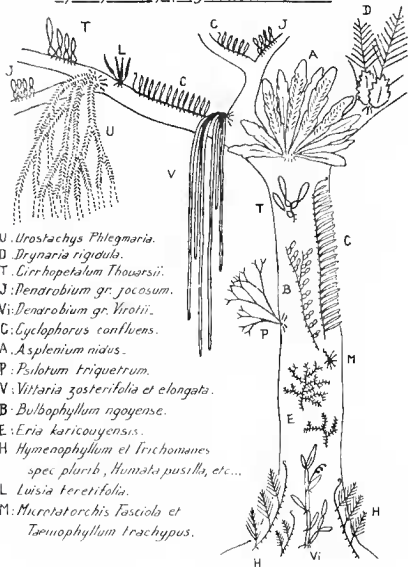 T
L
C
J
C
J
A
D
U
V
T
C
B
P
M
E
H
H
H
Vi
U. Urostachys Phlegmaria.
D. Drynaria rigidula.
T. Cirrhopetalum Thouarsii.
J: Dendrobium gr. jocosum.
Vi: Dendrobium gr. Virotii.
C: Cyclophorus confluens.
A. Asplenium nidus.
P: Psilotum triquetrum.
V: Vittaria zosterifolia et elongata.
B. Bulbophyllum ngoyense.
E: Eria karicouyensis.
H Hymenophyllum et Trichomanes
spec plurib, Humata pusilla, etc...
L Luisia teretifolia.
M: Microtatorchis Fasciola et
Taeniophyllum trachypus.